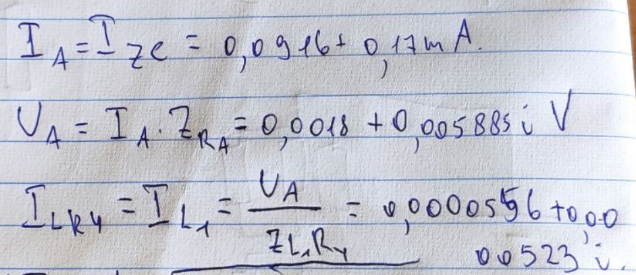 I_A = I_ZC = 0,0916 + 0,17 m A.
U_A = I_A · Z_RA = 0,0018 + 0,005885 i V
I_LR4 = I_L1 = U_A / Z_L1R4 = 0,0000556 + 0,0
00523 i.